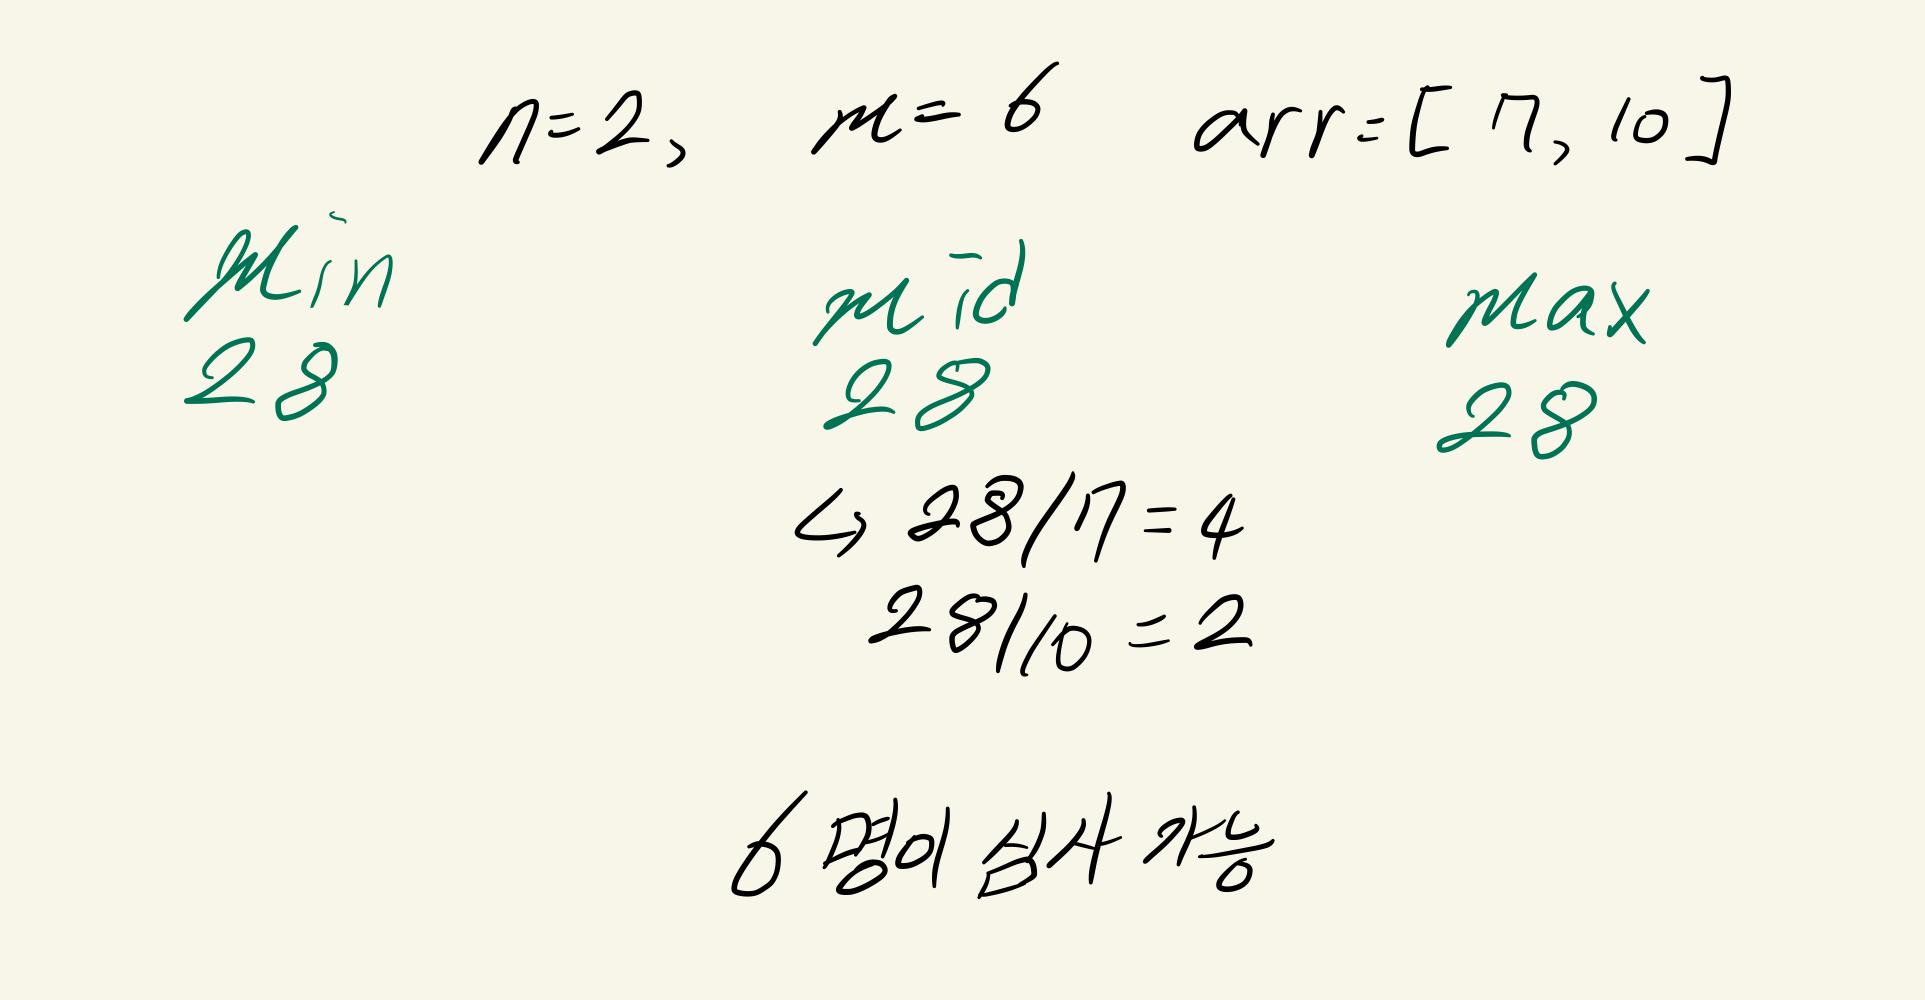 n=2, m=6 arr=[7, 10]
min mid max
28 28 28
↳ 28/7=4
28/10=2
6명이 심사 가능